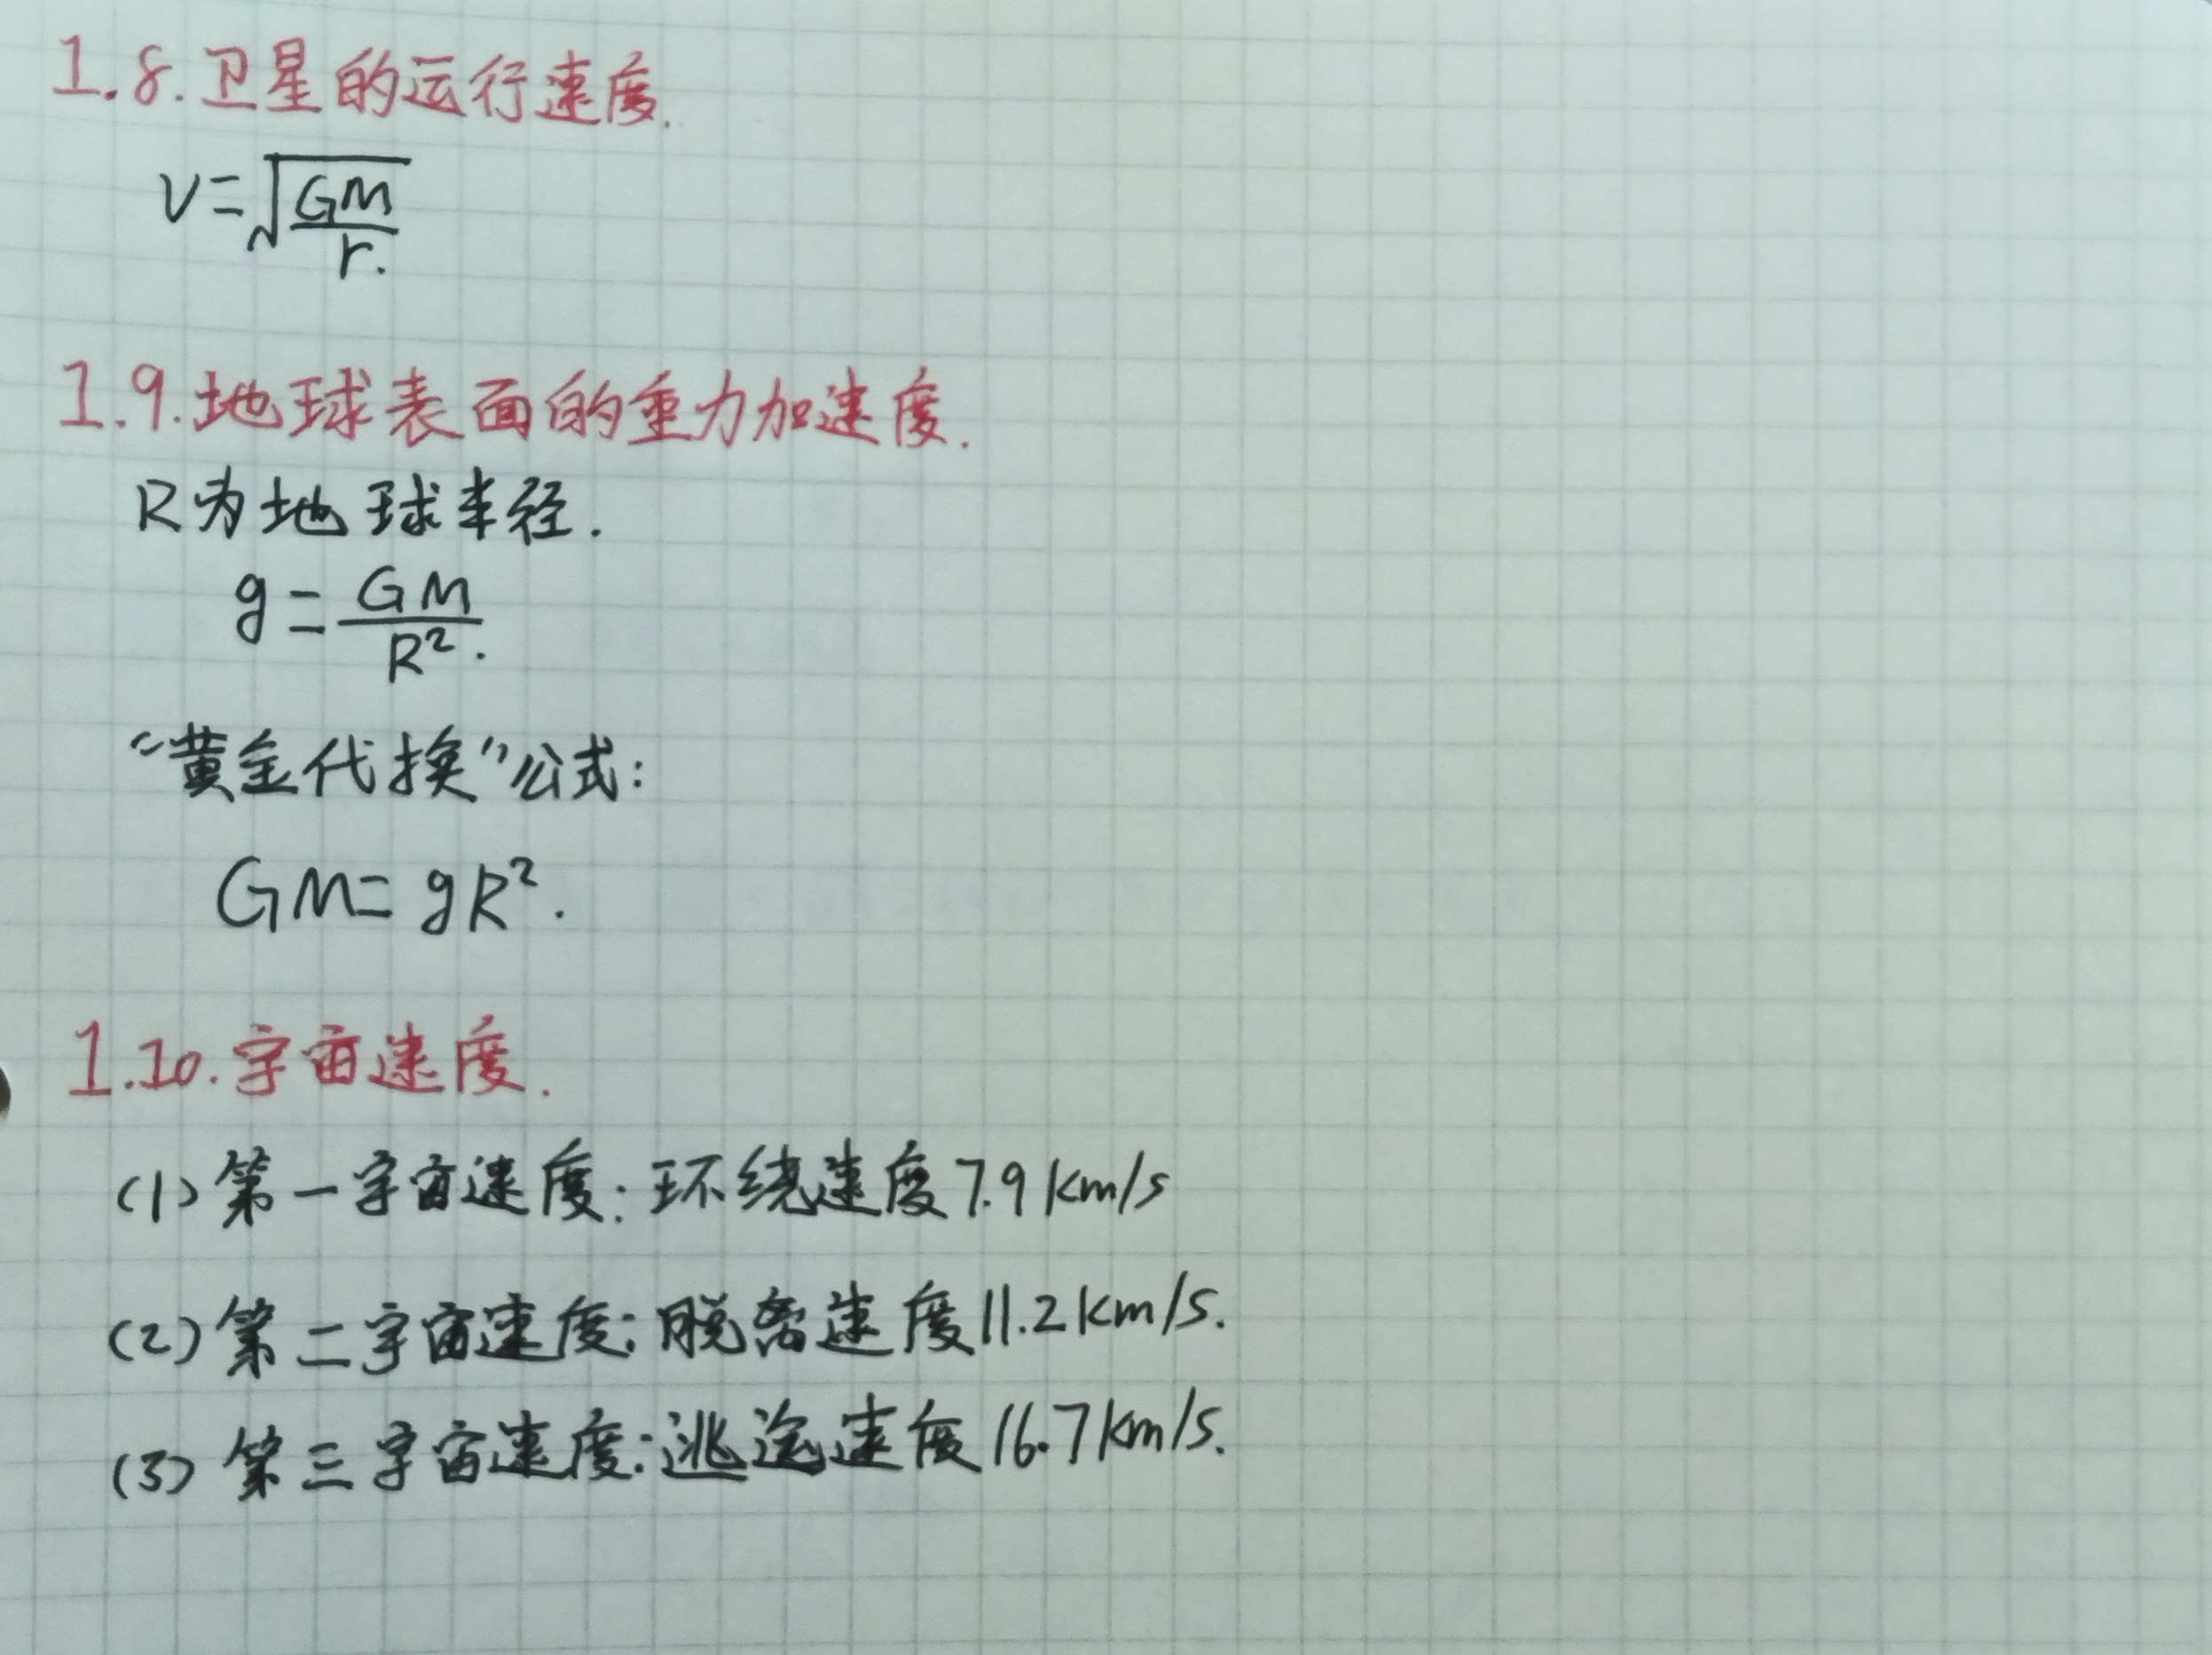 1.8.卫星的运行速度.
V=√(GM/r).
1.9.地球表面的重力加速度.
R为地球半径.
g=GM/R².
“黄金代换”公式:
GM=gR².
1.10.宇宙速度.
(1)第一宇宙速度:环绕速度7.9km/s
(2)第二宇宙速度:脱离速度11.2km/s.
(3)第三宇宙速度:逃逸速度16.7km/s.